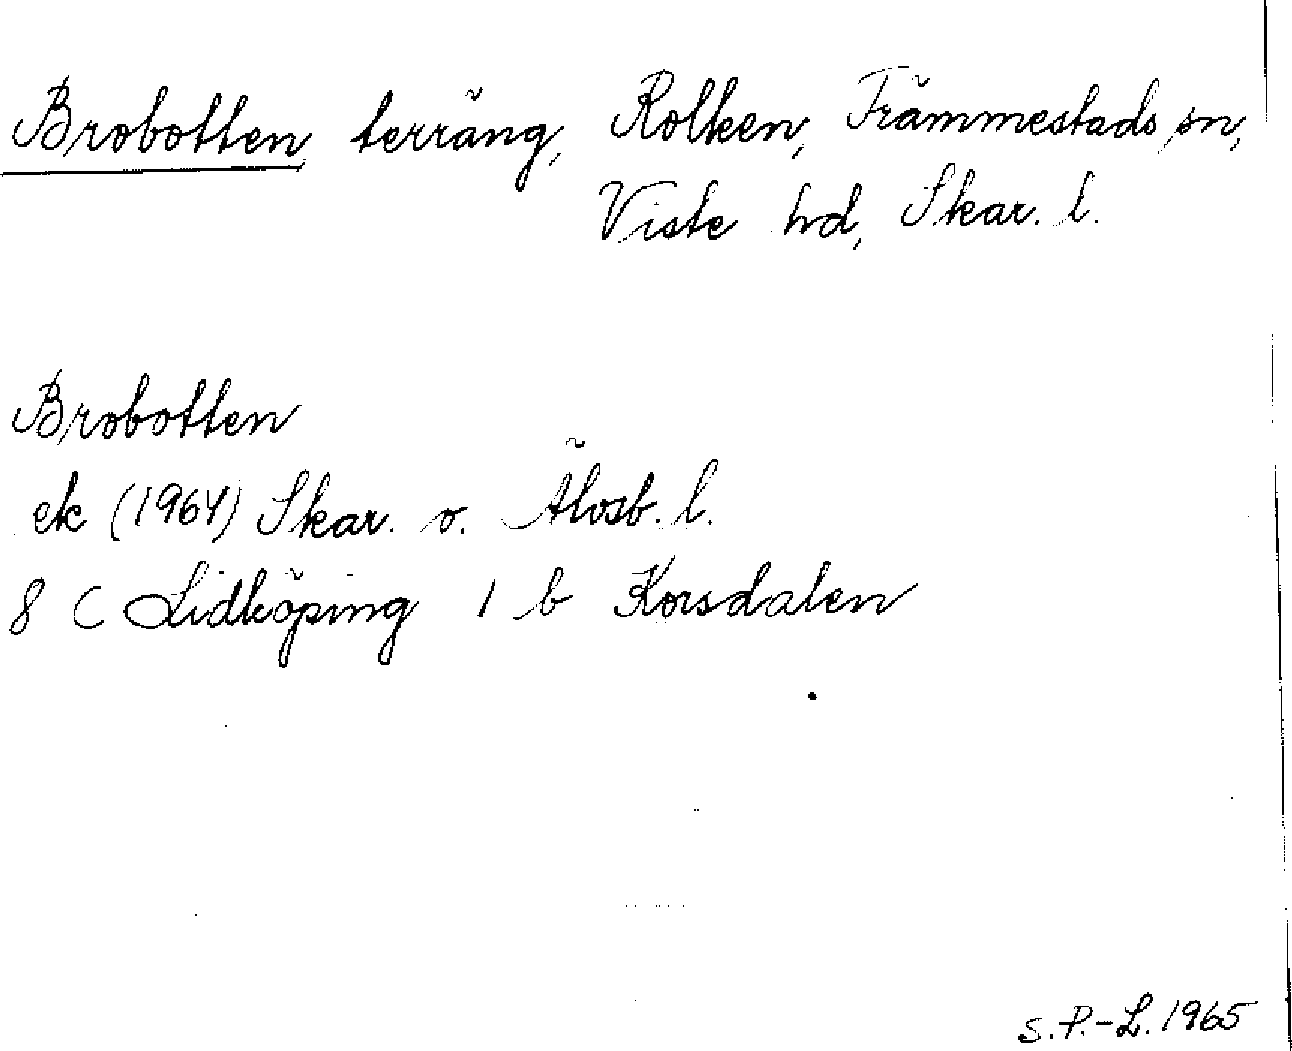 Brobotten terräng, Rolken, Främmestads sn,
Viste hd, Skar. l.
Brobotten
ek (1964) Skar. o. Älvsb. l.
8 C Lidköping 1 b Korsdalen
S.P.-L. 1965